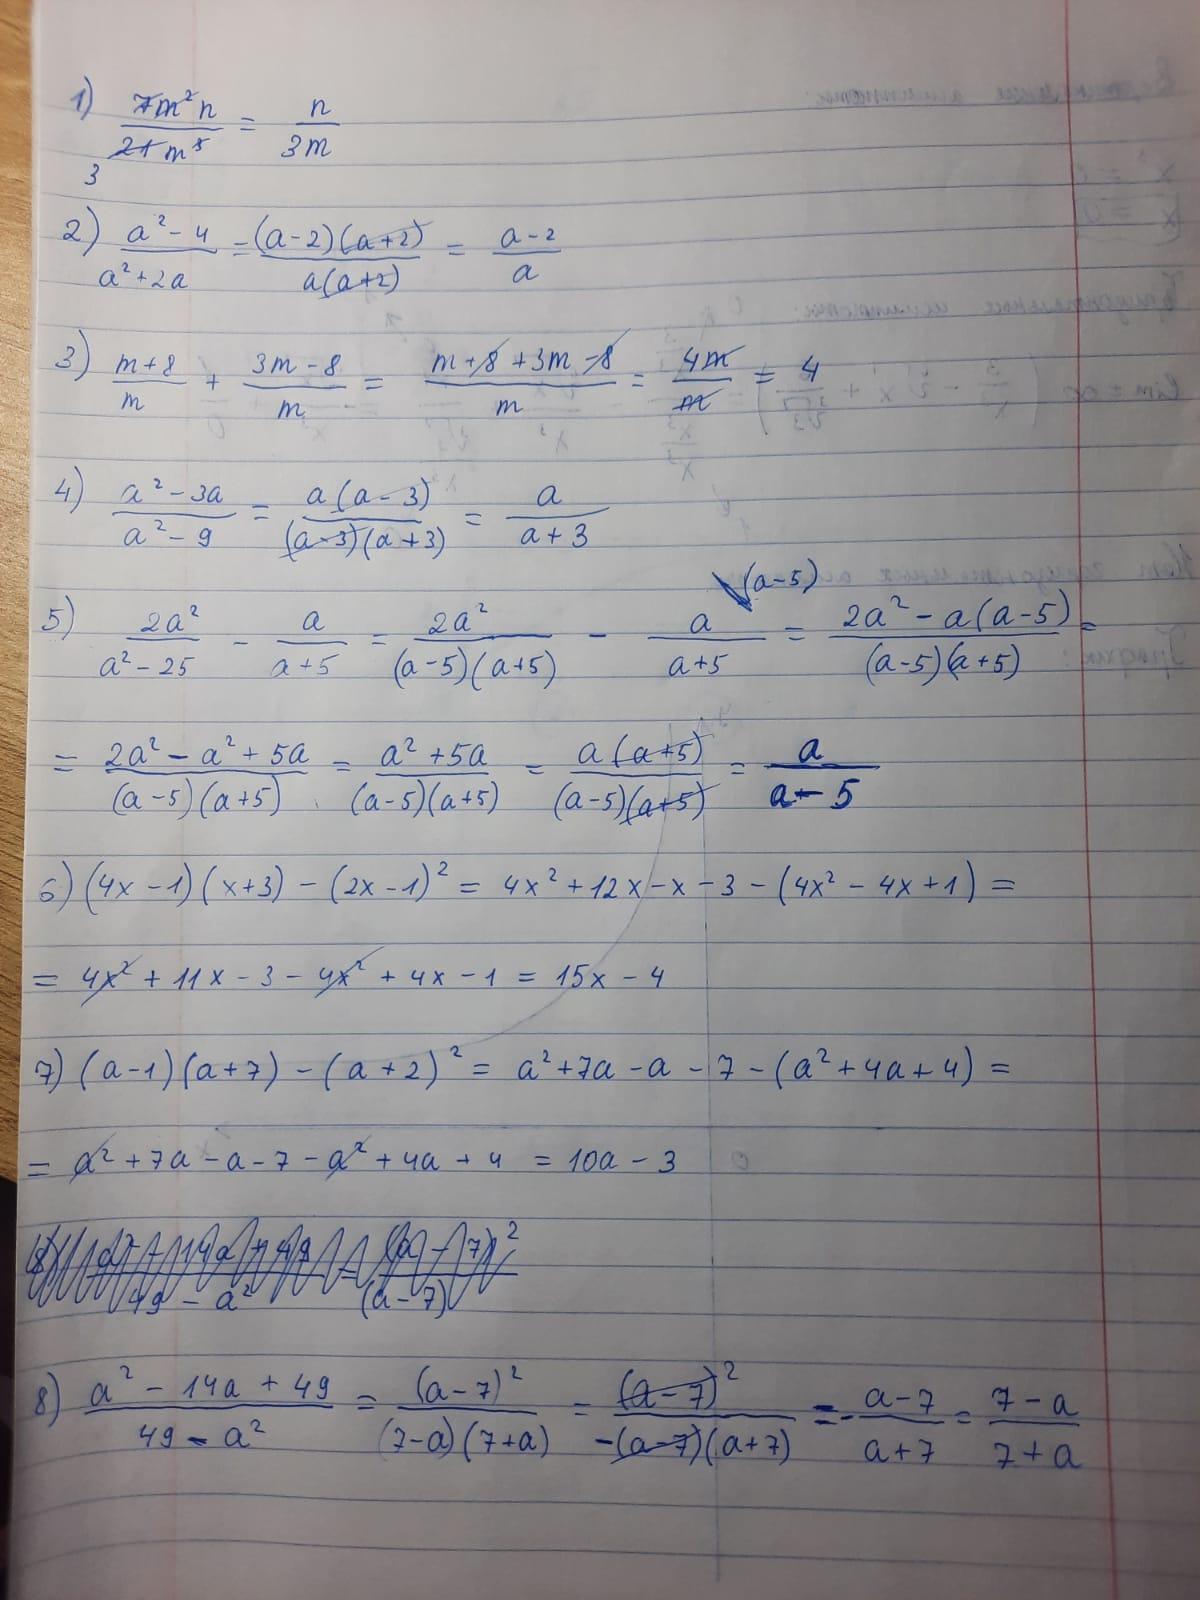 1) 7m²n/21m³ = n/3m
3
2) a²-4/a²+2a = (a-2)(a+2)/a(a+2) = a-2/a
3) m+8/m + 3m-8/m = m+8+3m-8/m = 4m/m = 4
4) a²-3a/a²-9 = a(a-3)/(a-3)(a+3) = a/a+3
5) 2a²/a²-25 - a/a+5 = 2a²/(a-5)(a+5) - a\(a-5)/a+5 = 2a²-a(a-5)/(a-5)(a+5) =
= 2a²-a²+5a/(a-5)(a+5) = a²+5a/(a-5)(a+5) = a(a+5)/(a-5)(a+5) = a/a-5
6) (4x-1)(x+3)-(2x-1)² = 4x²+12x-x-3-(4x²-4x+1) =
= 4x²+11x-3-4x²+4x-1 = 15x-4
7) (a-1)(a+7)-(a+2)² = a²+7a-a-7-(a²+4a+4) =
= a²+7a-a-7-a²+4a+4 = 10a-3
8) a²-14a+49/49-a² = (a-7)²/(7-a)(7+a) = (a-7)²/-(a-7)(a+7) = -a-7/a+7 = 7-a/7+a